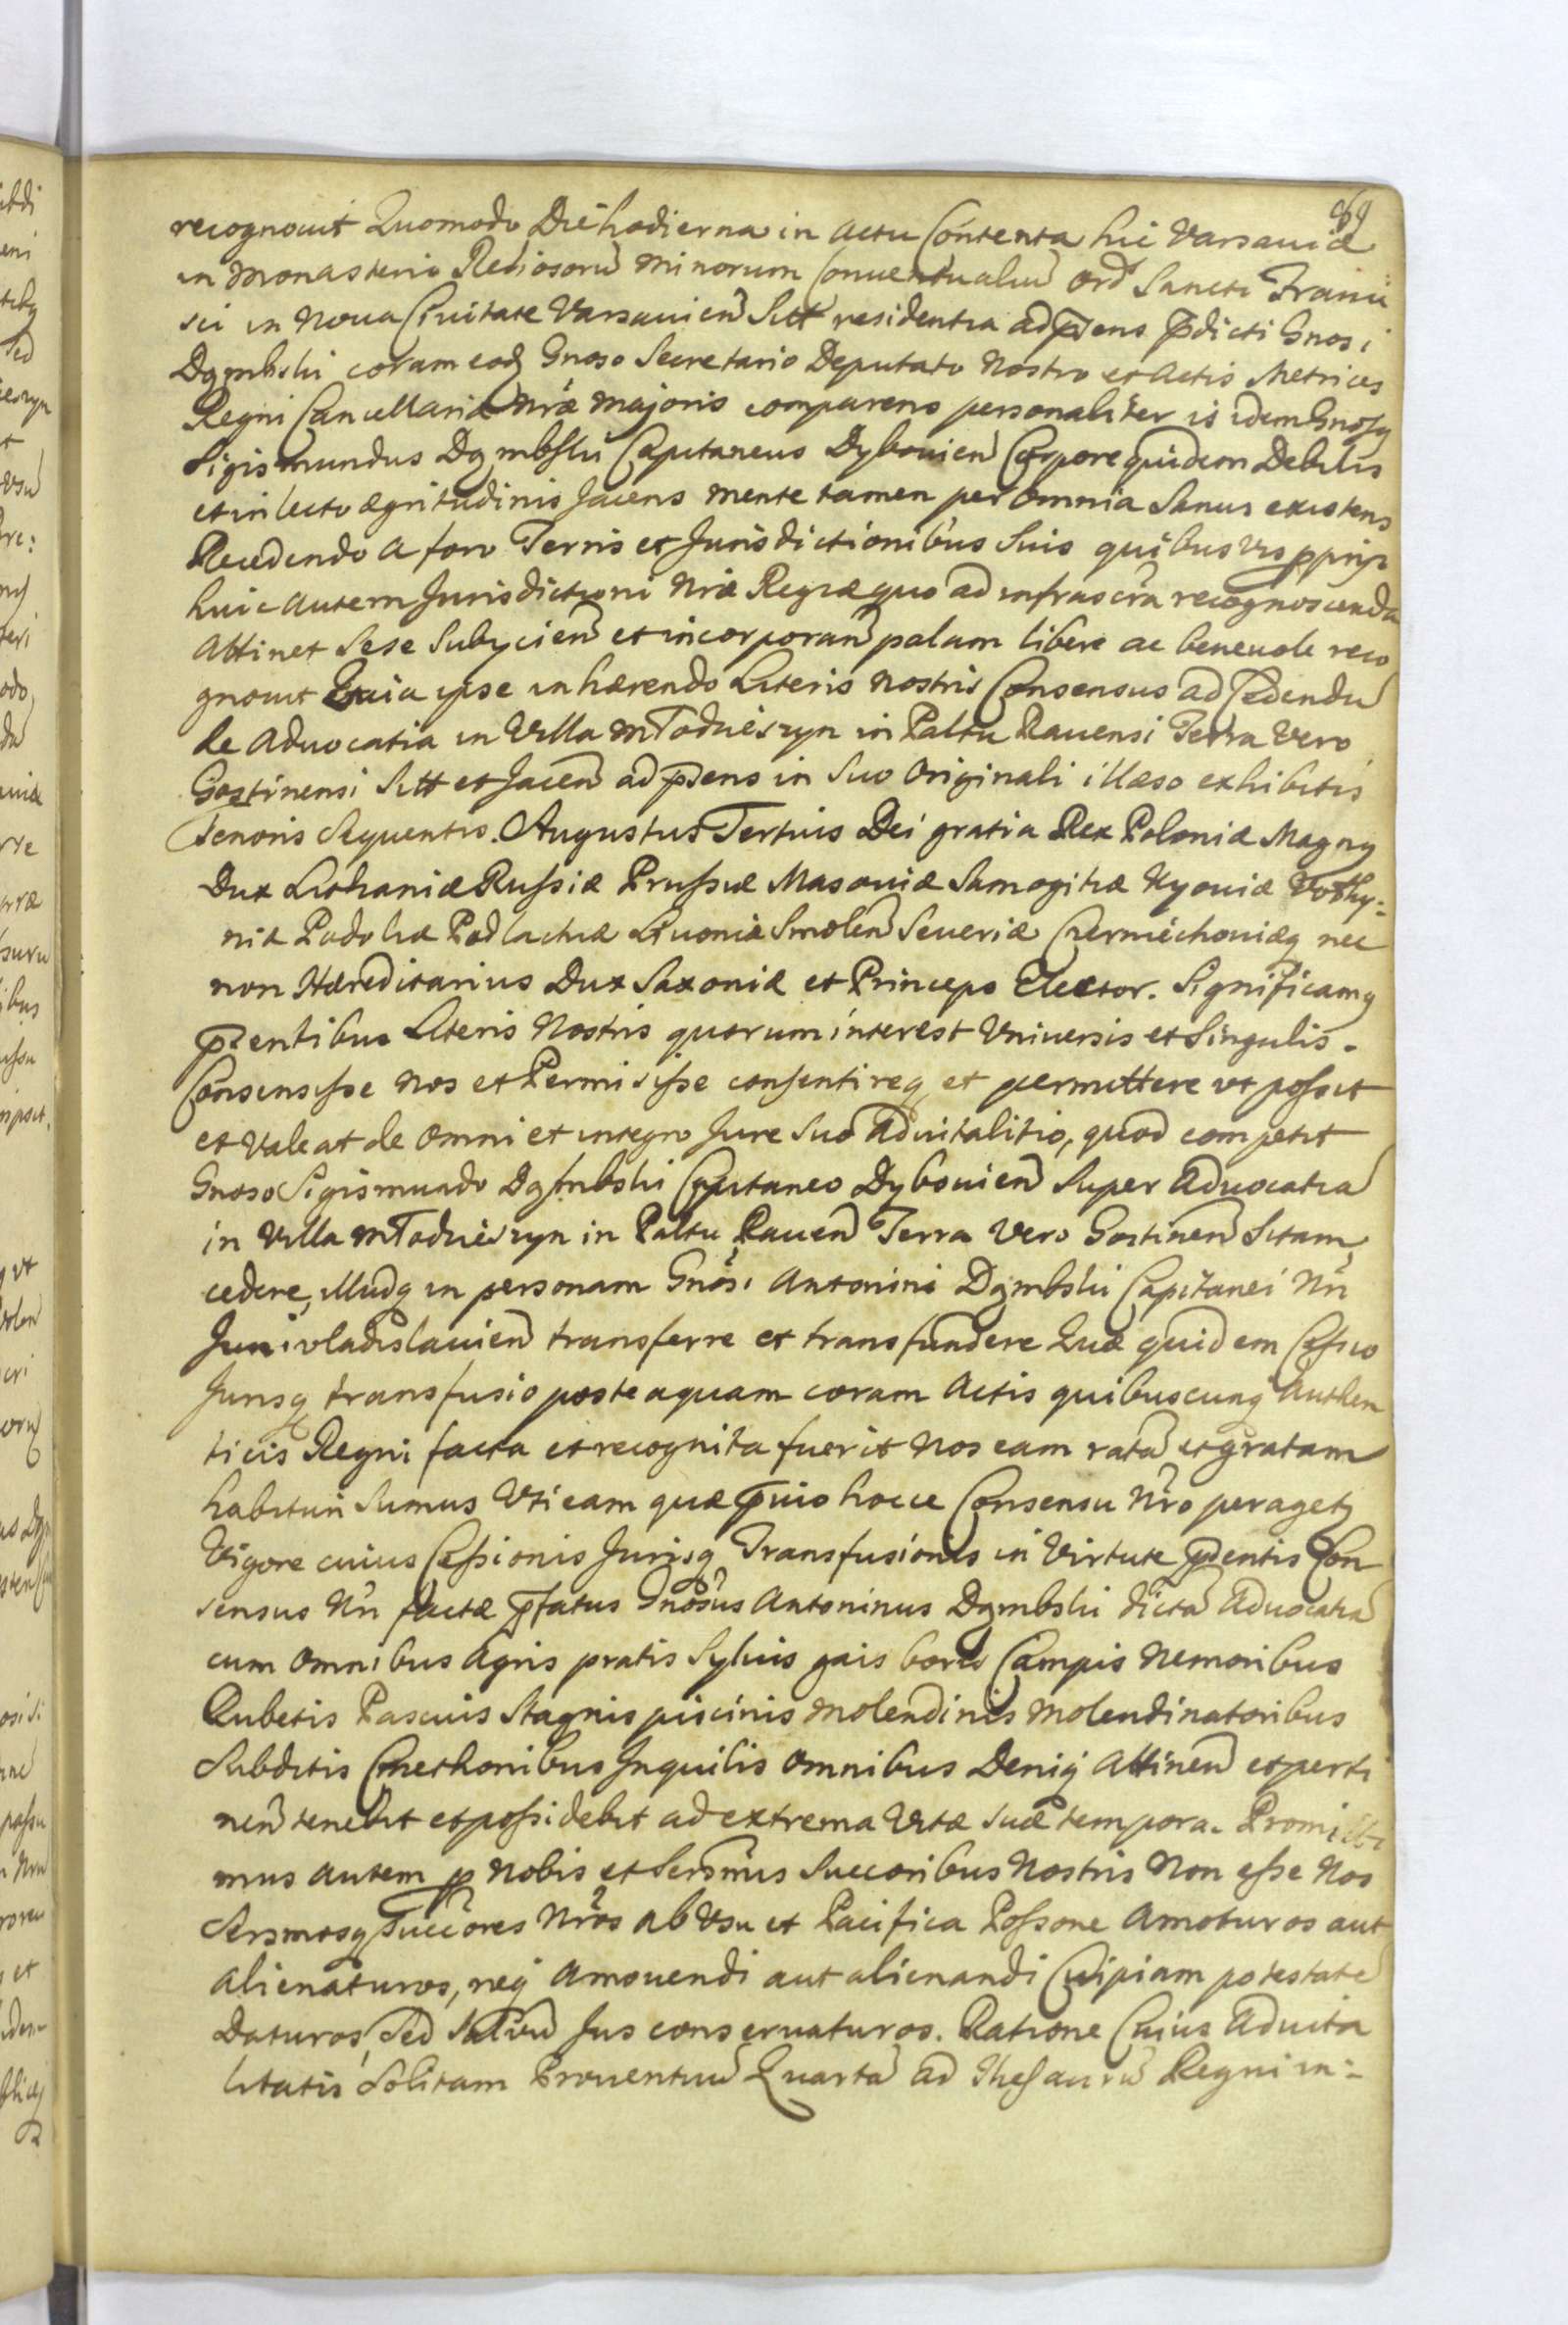 recognouit Quomodo Die hodierna in actu Contenta hic Varsauiæ
in Monasterio Reliosorũ Minorum Conuentualiũ Ord Sancti Franci
sci in Noua Ciuitate Varsauień Sitt residentia ad pñens pdicti Gnosi
Dąmbski coram eod Gnoso Secretario Deputato Nostro et Actis Metrices
Regni Cancellariæ Nræ Majoris comparens personaliter is idem Gnosq
Sigismundus Dąmbski Capitaneus Dybouień Corpore quidem Debilis
et in lecto ægritudinis Jacens mente tamen per omnia Sanus existens
Recedendo a foro Terris et Jurisdictionibus Suis quibusvis pprijs
huic autem Jurisdictioni Nræ Regiæ quo ad infrascra recognoscenda
Attinet Sese Subijcień et incorporań palam libere ac beneuole reco
gnouit Quia ipse inhærendo Literis Nostris Consensus ad Cedendũ
de Aduocatia in Villa Młodzieszyn in Paltu Rauensi Terra Vero
Gostinensi Sitt et Jaceń ad pñens in Suo Originali illæso exhibitis
Tenoris Sequentis. Augustus Tertius Dei gratia Rex Poloniæ Magnq
Dux Lithaniæ Russiæ Prussiæ Masouiæ Samogitiæ Kyouiæ Volhy:
niæ Podoliæ Podlachiæ Liuoniæ Smoleń Seueriæ Czerniechouiæq nec
non Hæreditarius Dux Saxoniæ et Princeps Elector. Significamq
pñentibus Literis Nostris quorum interest Vniuersis et Singulis.
Consensisse nos et Permisisse consentireq et permittere vt possit
et valeat de omni et integro Jure Suo Aduitalitio, quod competit
Gnoso Sigismundo Dąmbski Capitaneo Dybouień Super Aduocatia
in Villa Młodzieszyn in Paltu Raueń Terra Vero Gostineń Sitam,
cedere, illudq in personam Gnosi Antonini Dąmbski Capitanei Nri
Juniuladislauień transferre et transfundere Quæ quidem Cessio
Jurisq transfusio posteaquam coram Actis quibuscunq Authen
ticis Regni facta et recognita fuerit Nos eam ratã et gratam
habituri Sumus Vti eam quæ pvio hocce Consensu Nro peragetz
Vigore cuius Cessionis Jurisq Transfusionis in Virtute pñentis Con
sensus Nri factæ pfatus Gnosus Antoninus Dąmbski dictã Aduocatiã
cum omnibus Agris pratis Syluis gais boris Campis Nemoribus
Rubetis Pascuis Stagnis piscinis Molendinis Molendinatoribus
Subditis Cmethonibus Inquilis omnibus Deniq Attineń et perti
neń tenebit et possidebit ad extrema Vitæ Suæ tempora. Promitti
mus autem p Nobis et Sersmis Succoribus Nostris Non esse Nos
Sersmosq Succores Nros ab Vsu et Pacifica Possone Amoturos aut
alienaturos, neq Amouendi aut alienandi Cuipiam potestatẽ
Daturos, Sed Saluũ Jus conseruaturos. Ratione Cuius Aduita
litatis Solitam Prouentuũ Quartã ad Thesaurũ Regni in: